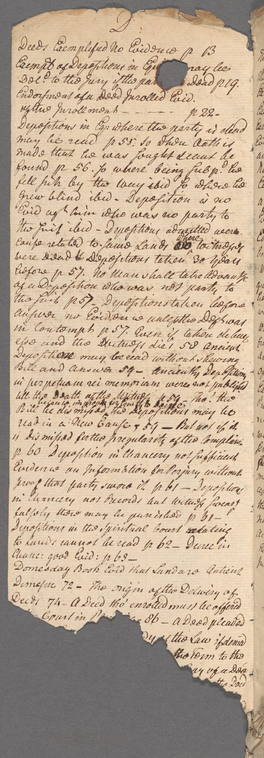 D
Deeds Exemplified No Evidence p 13
Exempt of Depositions in may be
Del'd to the Jury if the dead p 19
Endorsment of a Deed Inrolled Evid.
of the Inrollment - p 22 -
Depositions in Eq where the party is dead
may be read p 55. So where Oath is
made that he was sought & cannot be
found p 56. So where being
fell sick by the way ibid So where he
grew blind ibid - Deposition is no
Evid agt him who was no party to
the Suit ibid - Depositions were
Cause related to same Lands & Witnesses
were dead & Depositions taken 30 Years
before p 57. No Man shall take advantage
of a Deposition who was not party to
the Suit p 57 - Depositions taken before
answer no Evidence unless the Deft was
in Contempt p 57 Even if taken de bene
esse and the Witness dies 58 Ancient
Depositions may be read without shewing
Bill and Answer 54 - Anciently Depositions
in perpetuam rei memoriam were not published
till the Death of the Witness p 59 Tho' the
Bill be dismissed, the Depositions may be
read in a New Cause p 59 - But not if it
is dismissed for the irregularity of the Complain
p 60 Deposition in Chancery not sufficient
Evidence on Information for Perjury without
proof that party swore it p 61 - Depositions
in Chancery not Records but Witness swearing
falsely there may be punished p 61 -
Depositions in the Spiritual Court relating
to Lands cannot be read p 62 - Decree in
Chanc: good Evid: p 62 -
Domesday Book Evid that Lands are Antient
Demesne 72 - The origin of the Delivery of
Deeds 74 - A Deed tho' enrolled must be offered
Court in 86 - a Deed pleaded
the Law if denied
the Term to the
of a Deed